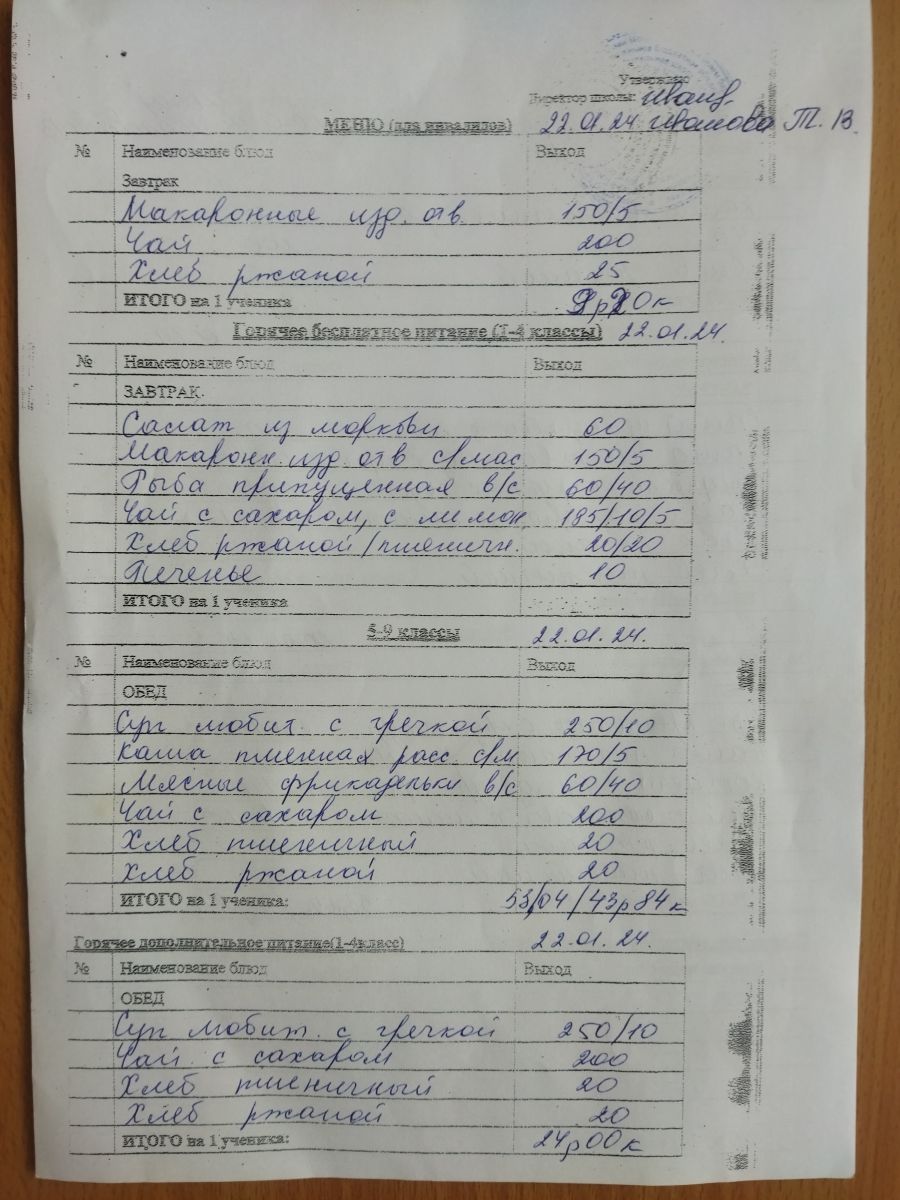 Утверждаю
Директор школы:
МЕНЮ (для инвалидов) 22.01.24 Иванова Т. В.
№ Наименование блюд Выход
Завтрак
Макаронные изд. отв. 150/5
Чай 200
Хлеб ржаной 25
ИТОГО на 1 ученика
Горячее бесплатное питание (1-4 классы) 22.01.24.
№ Наименование блюд Выход
ЗАВТРАК.
Салат из моркови 60
Макарон. изд. отв с/мас 150/5
Рыба припущенная в/с 60/40
Чай с сахаром, с лимон 185/10/5
Хлеб ржаной/пшеничн. 20/20
Печенье 10
ИТОГО на 1 ученика
5-9 классы 22.01.24.
№ Наименование блюд Выход
ОБЕД
Суп любит. с гречкой 250/10
Каша пшенная расс с/м 170/5
Мясные фрикадельки в/с 60/40
Чай с сахаром 200
Хлеб пшеничный 20
Хлеб ржаной 20
ИТОГО на 1 ученика: 53/04/43р84к
Горячее дополнительное питание(1-4класс) 22.01.24.
№ Наименование блюд Выход
ОБЕД
Суп любит. с гречкой 250/10
Чай с сахаром 200
Хлеб пшеничный 20
Хлеб ржаной 20
ИТОГО на 1 ученика: 24р00к